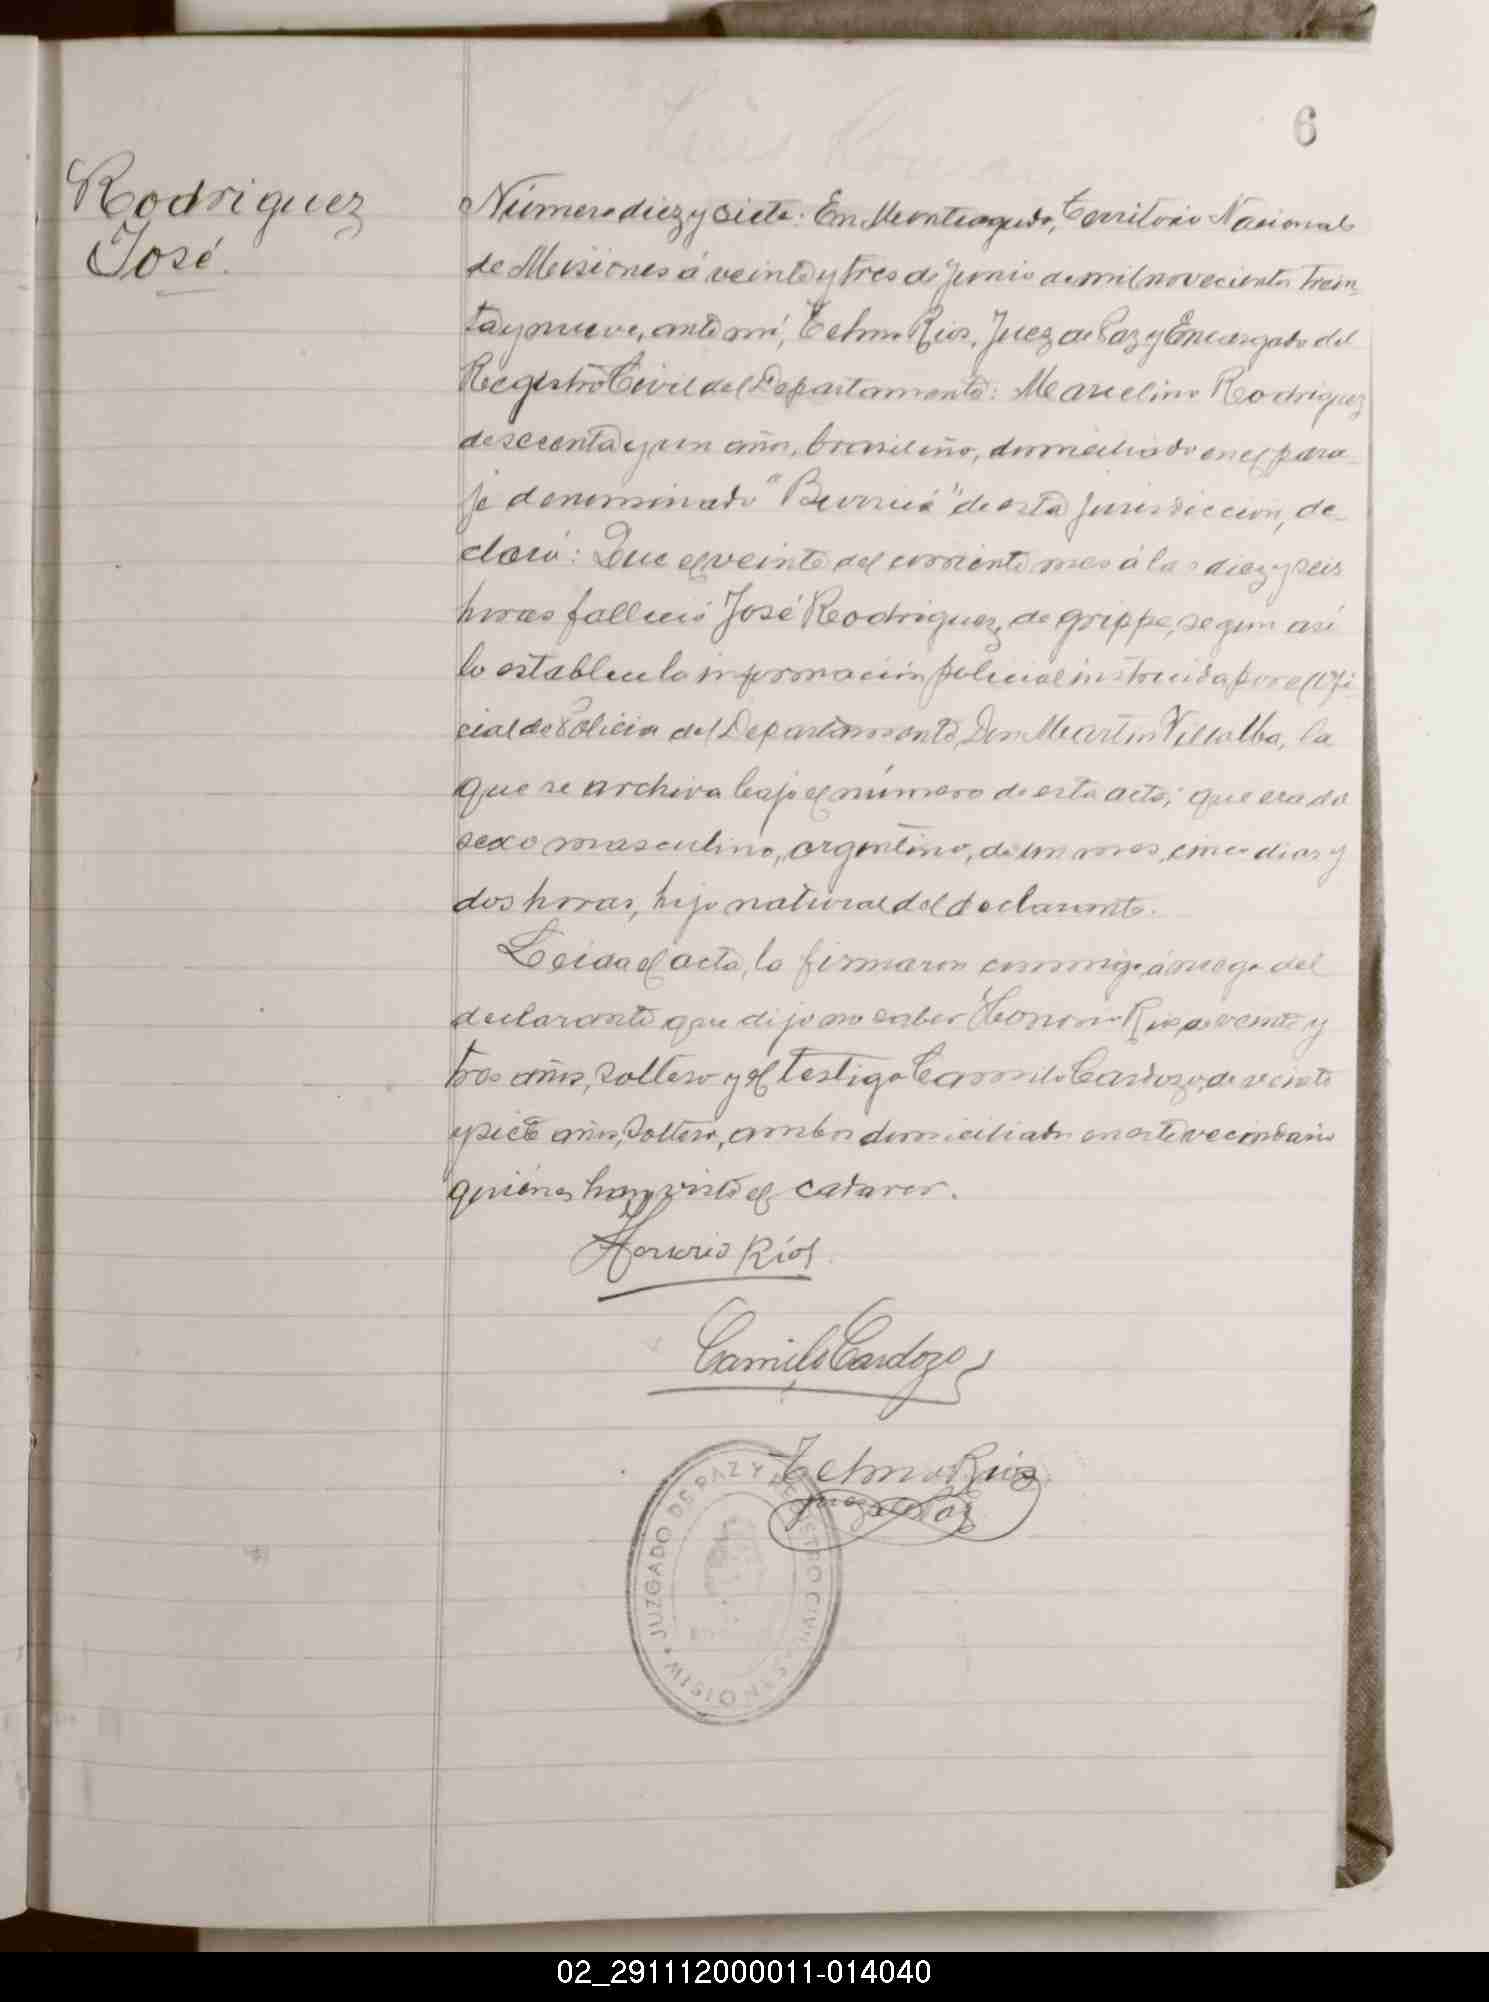 6
Rodriguez
José.
Número diez y siete. En Monteagudo, Territorio Nacional
de Misiones á veinte y tres de Junio de mil novecientos trein-
ta y nueve, ante mí, Telmo Rios, Juez de Paz y Encargado del
Registro Civil del Departamento: Marcelino Rodriguez
de secenta y un años, brasileño, domiciliado en el para-
je denominado " " de esta jurisdiccion, de-
claró: Que el veinte del corriente mes á las diez y seis
horas falleció José Rodriguez, de grippe, segun asi
lo establece la informacion policial instruida por el Ofi-
cial de Policia del Departamento, Don Martin Villalba, la
que se archiva bajo el número de esta acta; que era de
sexo masculino, argentino, de un mes, cinco dias y
dos horas, hijo natural del declarante.
Leida el acta, la firmaron conmigo, á ruego del
declarante que dijo no saber Honorio Rios de veinte y
tres años, soltero y el testigo Camilo Cardozo, de veinte
y siete años, soltero, ambos domiciliados en este vecindario
quiénes han visto el cadaver.
Honorio Ríos
Camilo Cardozo
Telmo Rios
Juez de Paz
JUZGADO DE PAZ Y REGISTRO CIVIL MISIONES
02_291112000011-014040